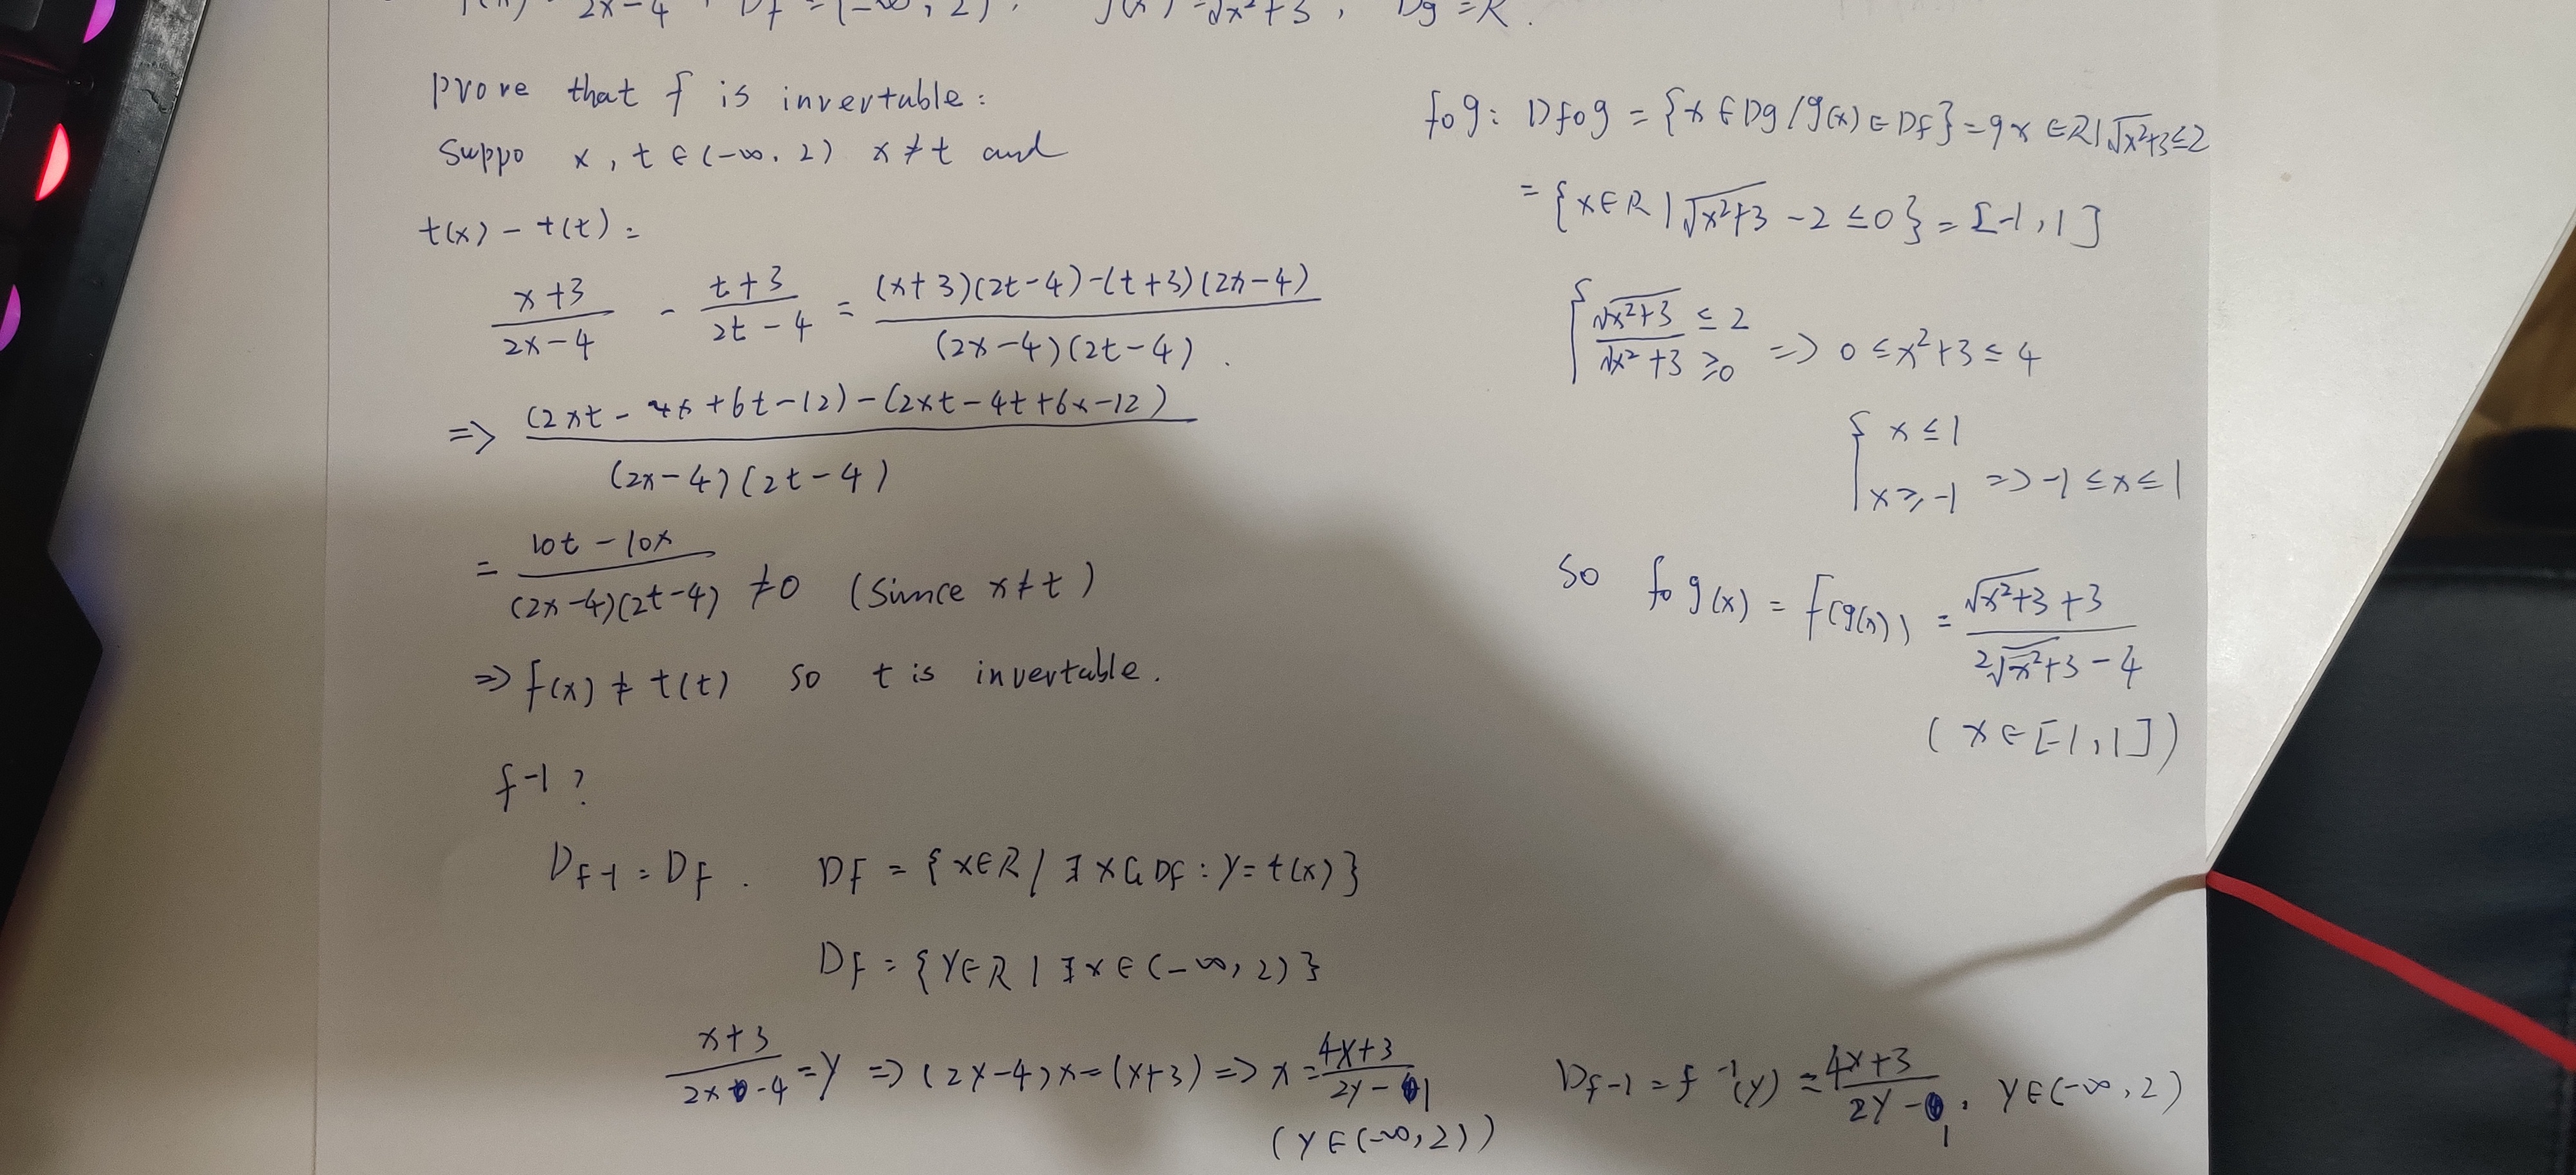 2x-4, Df = (-∞, 2), g(x) = √x²+3, Dg = R.
Prove that f is invertable:
Suppo x, t ∈ (-∞, 2) x≠t and
t(x) - t(t) =
x+3/2x-4 - t+3/2t-4 = (x+3)(2t-4)-(t+3)(2x-4)/(2x-4)(2t-4).
=> (2xt-4x+6t-12)-(2xt-4t+6x-12)/(2x-4)(2t-4)
= 10t-10x/(2x-4)(2t-4) ≠0 (Since x≠t)
=> f(x) ≠ t(t) so t is invertable.
f-1?
Df-1 = Df. Df = {x∈R/∃x∈Df: y=t(x)}
Df = {y∈R | ∃x∈(-∞, 2)}
x+3/2x-4 = y => (2x-4)x=(x+3) => x = 4y+3/2y-1
(y∈(-∞, 2))
fog: Dfog = {x∈Dg/g(x)∈Df} = {x∈R|√x²+3≤2
= {x∈R | √x²+3 - 2 ≤ 0} = [-1, 1]
{ √x²+3 ≤ 2
√x²+3 ≥0 => 0 ≤ x²+3 ≤ 4
{ x ≤ 1
x ≥ -1 => -1 ≤ x ≤ 1
so fog(x) = f(g(x)) = √x²+3+3/2√x²+3-4
(x∈[-1, 1])
Df-1 = f⁻¹(y) = 4x+3/2y-1, y∈(-∞, 2)